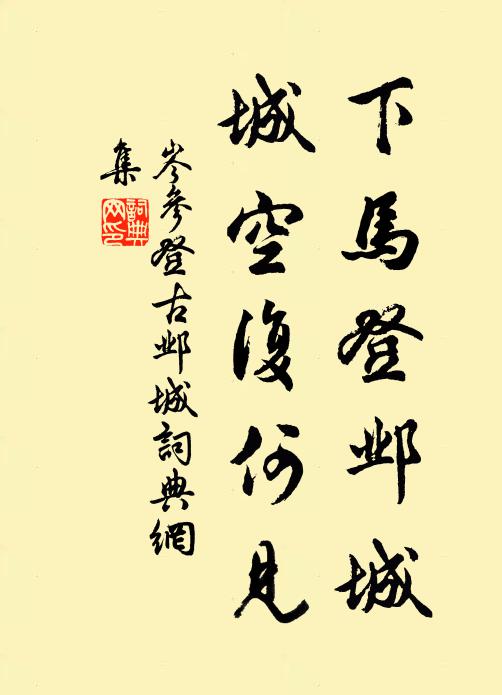 下馬登邺城
城空復何見
岑參登古邺城詞典網
集
詞典
网印